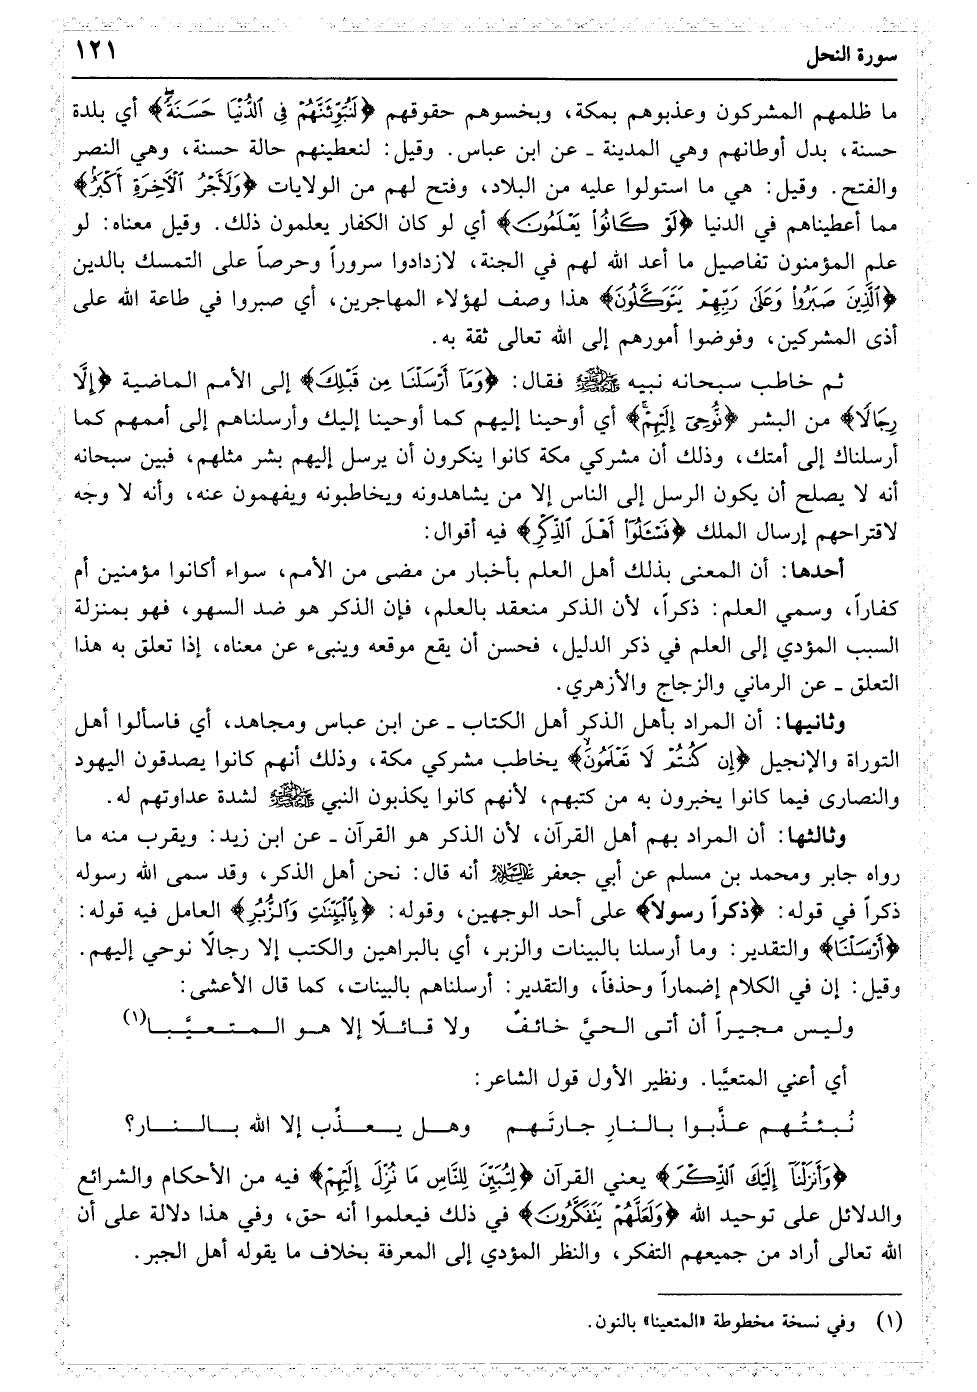 سورة النحل
١٢١
ما ظلمهم المشركون وعذبوهم بمكة، وبخسوهم حقوقهم ﴿لَنُبَوِّئَنَّهُمْ فِي ٱلدُّنْيَا حَسَنَةً﴾ أي بلدة
حسنة، بدل أوطانهم وهي المدينة ـ عن ابن عباس. وقيل: لنعطينهم حالة حسنة، وهي النصر
والفتح. وقيل: هي ما استولوا عليه من البلاد، وفتح لهم من الولايات ﴿وَلَأَجْرُ ٱلْآخِرَةِ أَكْبَرُ﴾
مما أعطيناهم في الدنيا ﴿لَوْ كَانُوا۟ يَعْلَمُونَ﴾ أي لو كان الكفار يعلمون ذلك. وقيل معناه: لو
علم المؤمنون تفاصيل ما أعد الله لهم في الجنة، لازدادوا سروراً وحرصاً على التمسك بالدين
﴿ٱلَّذِينَ صَبَرُوا۟ وَعَلَىٰ رَبِّهِمْ يَتَوَكَّلُونَ﴾ هذا وصف لهؤلاء المهاجرين، أي صبروا في طاعة الله على
أذى المشركين، وفوضوا أمورهم إلى الله تعالى ثقة به.
ثم خاطب سبحانه نبيه ﷺ فقال: ﴿وَمَآ أَرْسَلْنَا مِن قَبْلِكَ﴾ إلى الأمم الماضية ﴿إِلَّا
رِجَالًا﴾ من البشر ﴿نُّوحِىٓ إِلَيْهِمْ﴾ أي أوحينا إليهم كما أوحينا إليك وأرسلناهم إلى أممهم كما
أرسلناك إلى أمتك، وذلك أن مشركي مكة كانوا ينكرون أن يرسل إليهم بشر مثلهم، فبين سبحانه
أنه لا يصلح أن يكون الرسل إلى الناس إلا من يشاهدونه ويخاطبونه ويفهمون عنه، وأنه لا وجه
لاقتراحهم إرسال الملك ﴿فَسْـَٔلُوٓا۟ أَهْلَ ٱلذِّكْرِ﴾ فيه أقوال:
أحدها: أن المعنى بذلك أهل العلم بأخبار من مضى من الأمم، سواء أكانوا مؤمنين أم
كفاراً، وسمي العلم: ذكراً، لأن الذكر منعقد بالعلم، فإن الذكر هو ضد السهو، فهو بمنزلة
السبب المؤدي إلى العلم في ذكر الدليل، فحسن أن يقع موقعه وينبىء عن معناه، إذا تعلق به هذا
التعلق ـ عن الرماني والزجاج والأزهري.
وثانيها: أن المراد بأهل الذكر أهل الكتاب ـ عن ابن عباس ومجاهد، أي فاسألوا أهل
التوراة والإنجيل ﴿إِن كُنتُمْ لَا تَعْلَمُونَ﴾ يخاطب مشركي مكة، وذلك أنهم كانوا يصدقون اليهود
والنصارى فيما كانوا يخبرون به من كتبهم، لأنهم كانوا يكذبون النبي ﷺ لشدة عداوتهم له.
وثالثها: أن المراد بهم أهل القرآن، لأن الذكر هو القرآن ـ عن ابن زيد: ويقرب منه ما
رواه جابر ومحمد بن مسلم عن أبي جعفر عليه السلام أنه قال: نحن أهل الذكر، وقد سمى الله رسوله
ذكراً في قوله: ﴿ذكراً رسولاً﴾ على أحد الوجهين، وقوله: ﴿بِٱلْبَيِّنَـٰتِ وَٱلزُّبُرِ﴾ العامل فيه قوله:
﴿أَرْسَلْنَا﴾ والتقدير: وما أرسلنا بالبينات والزبر، أي بالبراهين والكتب إلا رجالًا نوحي إليهم.
وقيل: إن في الكلام إضماراً وحذفاً، والتقدير: أرسلناهم بالبينات، كما قال الأعشى:
وليس مجيراً أن أتى الحيَّ خائفٌ ولا قائلًا إلا هو المتعيَّبا(١)
أي أعني المتعيَّبا. ونظير الأول قول الشاعر:
نُبئتُهم عذَّبوا بالنارِ جارتَهم وهل يعذِّب إلا الله بالنار؟
﴿وَأَنزَلْنَآ إِلَيْكَ ٱلذِّكْرَ﴾ يعني القرآن ﴿لِتُبَيِّنَ لِلنَّاسِ مَا نُزِّلَ إِلَيْهِمْ﴾ فيه من الأحكام والشرائع
والدلائل على توحيد الله ﴿وَلَعَلَّهُمْ يَتَفَكَّرُونَ﴾ في ذلك فيعلموا أنه حق، وفي هذا دلالة على أن
الله تعالى أراد من جميعهم التفكر، والنظر المؤدي إلى المعرفة بخلاف ما يقوله أهل الجبر.
(١) وفي نسخة مخطوطة «المتعينا» بالنون.